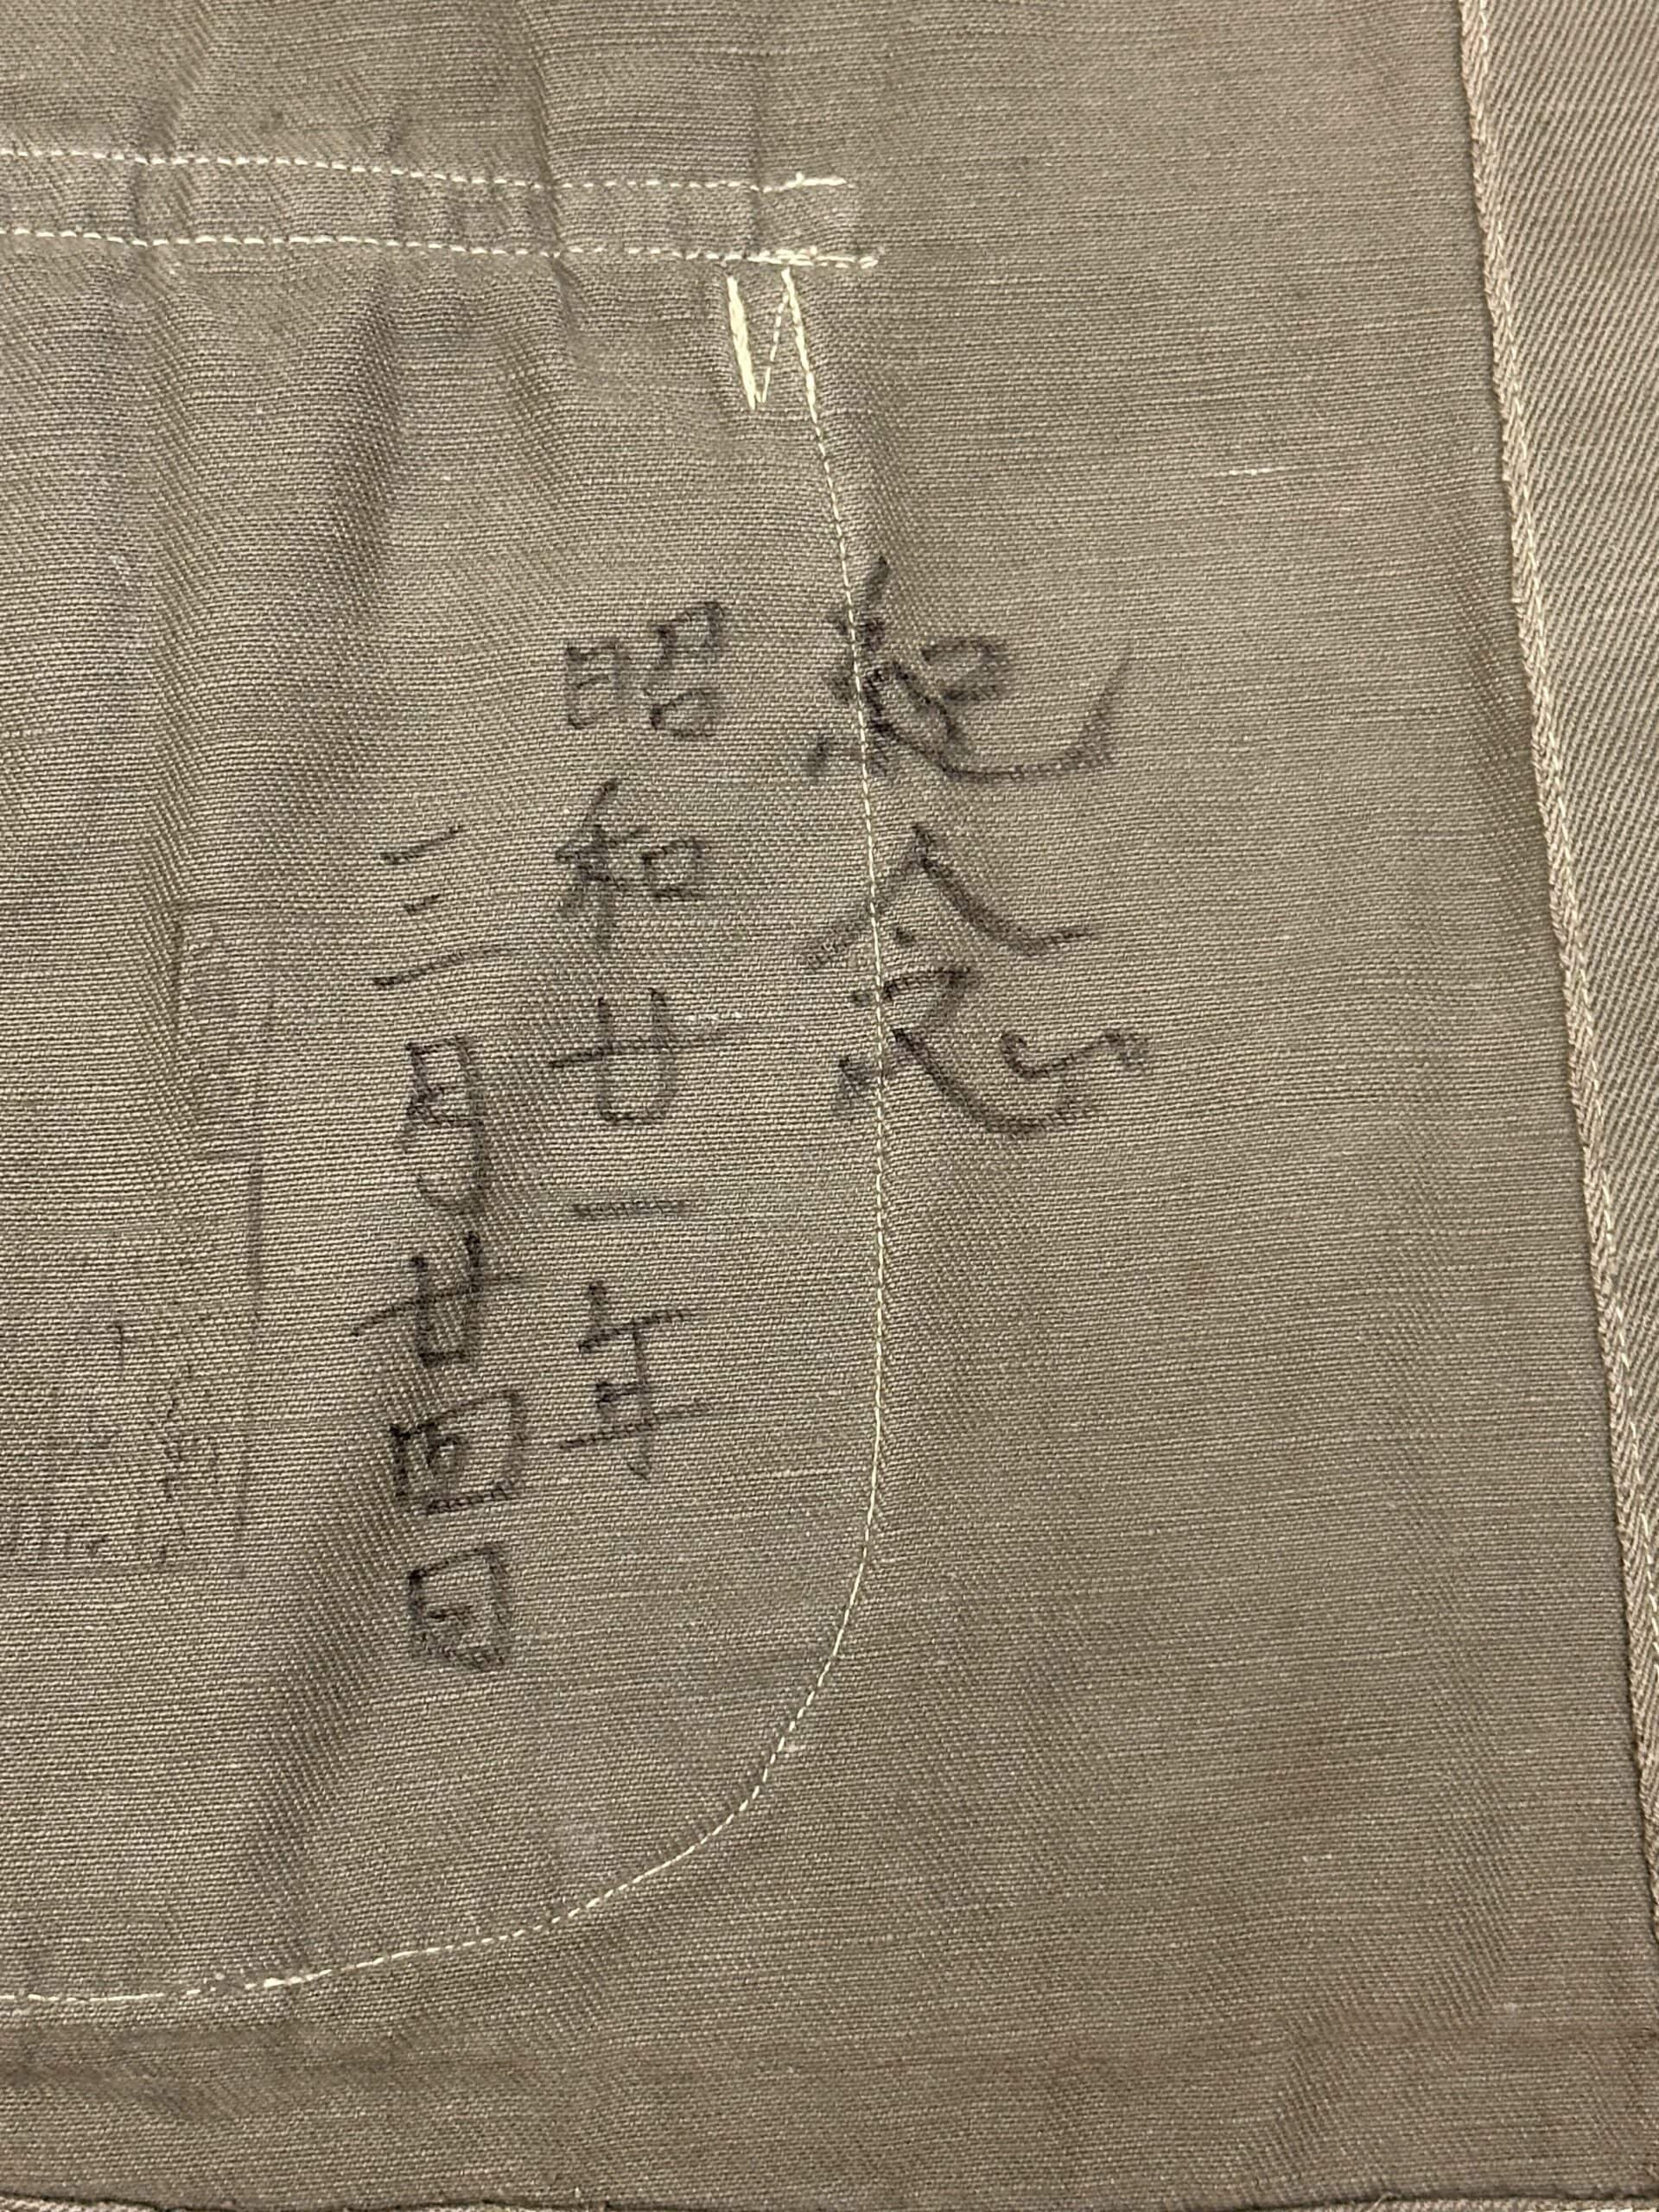 紀念
昭和廿一年
三月廿四日